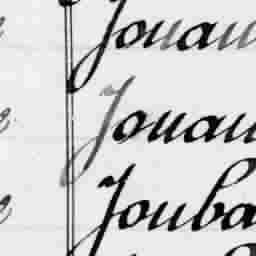 Jouau
Jouau
Jouba